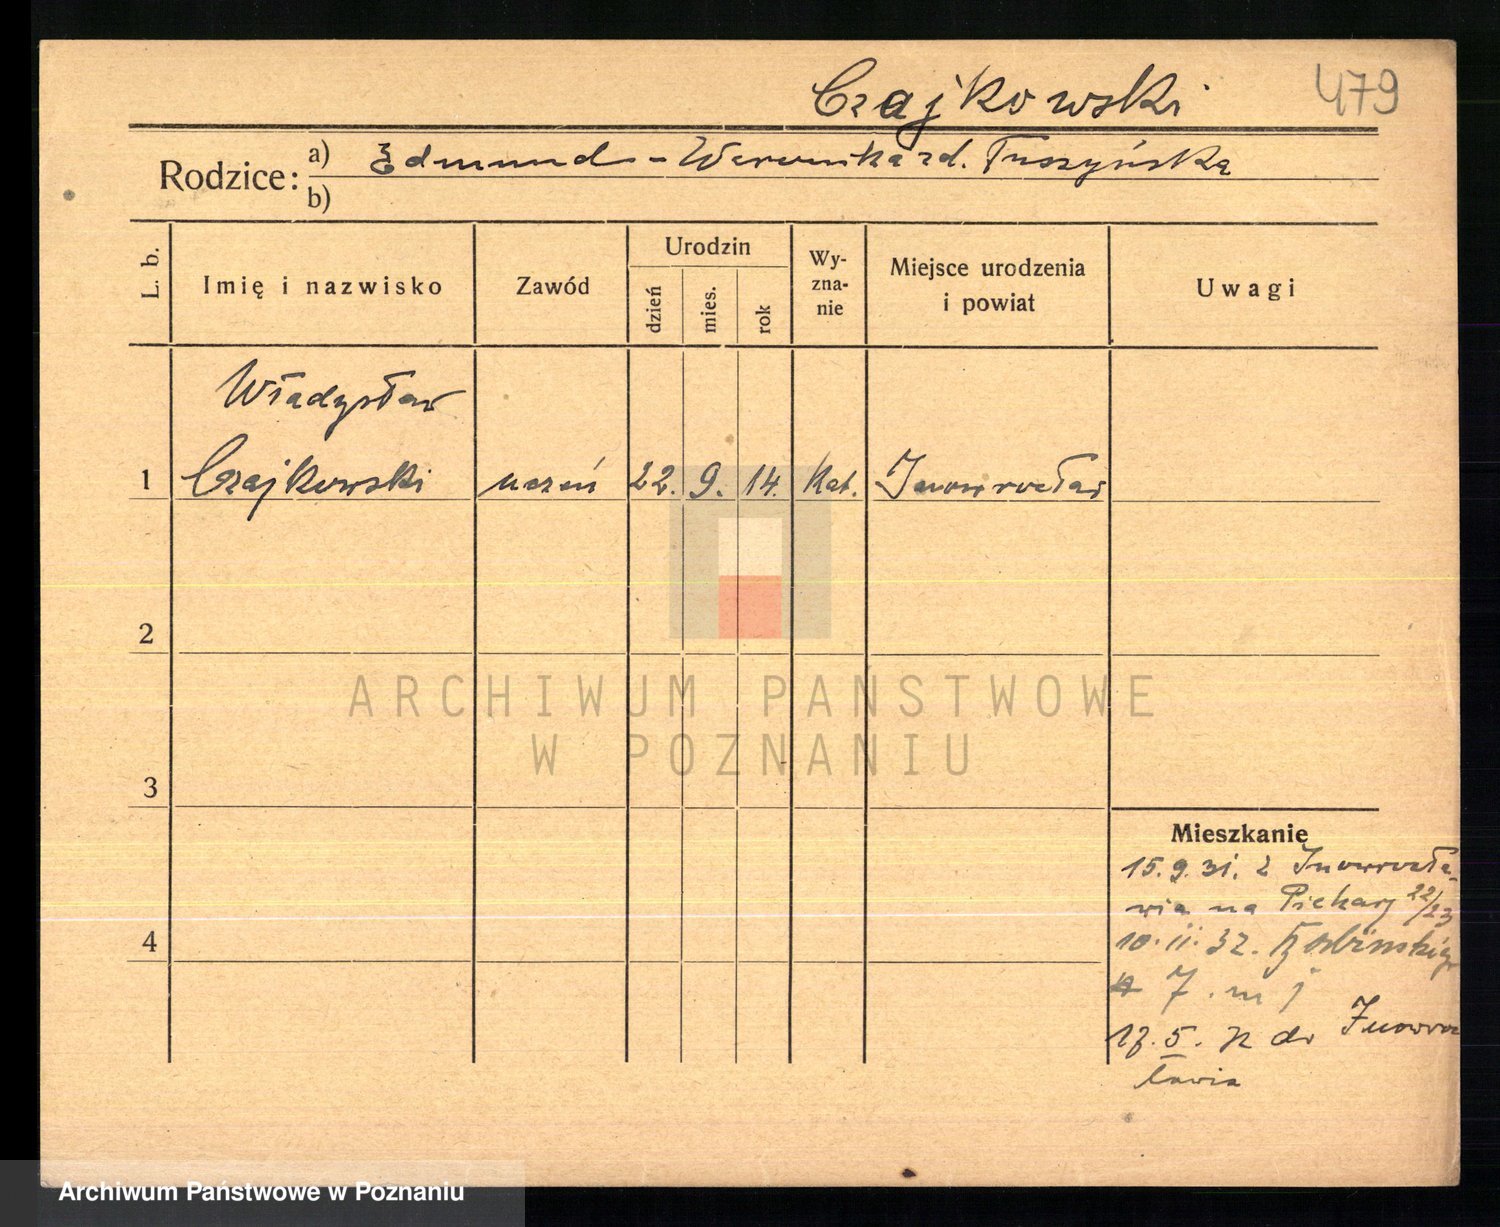 Czajkowski 479
Rodzice: a) Edmund – Weronika zd. Tuszyńska
b)
L. b. Imię i nazwisko Zawód Urodzin dzień mies. rok Wy-zna-nie Miejsce urodzenia i powiat Uwagi
Władysław
1 Czajkowski uczeń 22. 9. 14. Kat. Inowrocław
2
ARCHIWUM PAŃSTWOWE
W POZNANIU
3
Mieszkanie
15.9.31. z Inowrocła-
wia na Piekary 22/23
4
10.11.32.
7. m
17.5. do Inowro
cławia
Archiwum Państwowe w Poznaniu